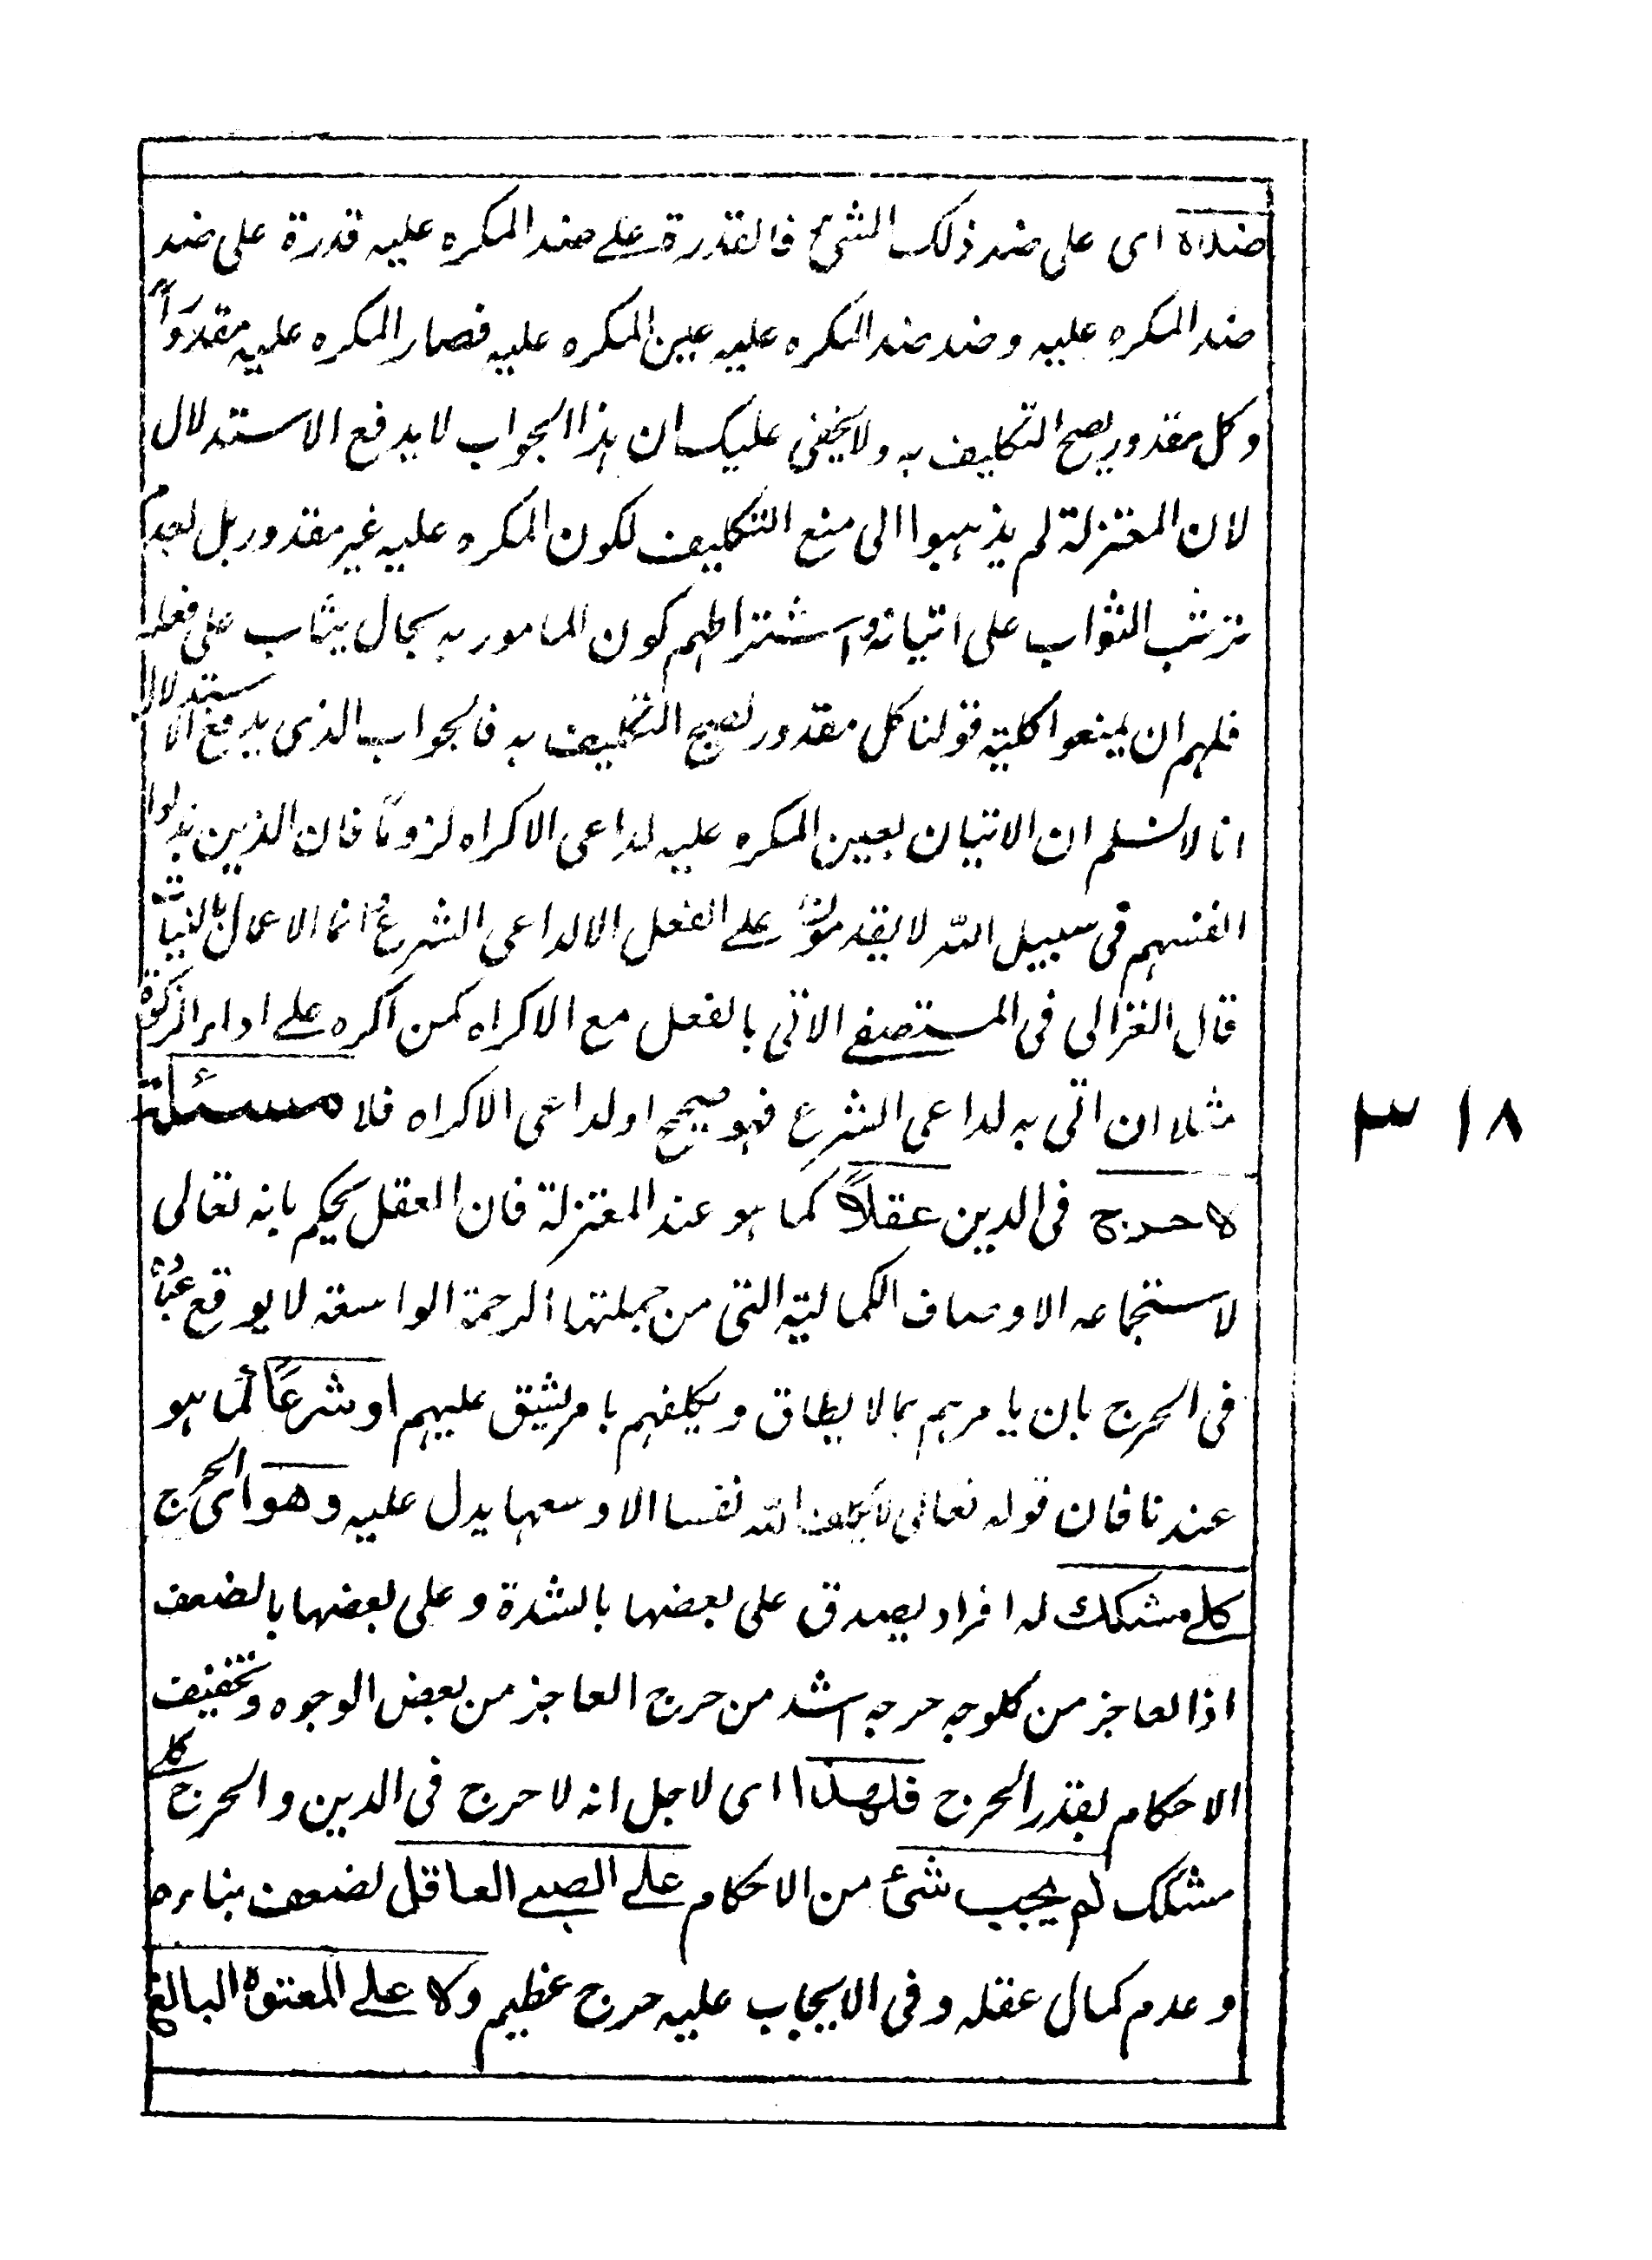 ضداه اى على ضد ذلك الشئ فالقدرة على ضد المكره عليه قدرة على ضد
ضد المكره عليه و ضد ضد المكره عليه عين المكره عليه فصار المكره عليه مقدورا
و كل مقدور يصح التكليف به ولا يخفى عليك ان هذا الجواب لا يدفع الاستدلال
لان المعتزلة لم يذهبوا الى منع التكليف لكون المكره عليه غير مقدور بل لعدم
ترتب الثواب على اتيانه و اشتراطهم كون المامور به بحال يثاب على فعله
فلهم ان يمنعوا كلية قولنا كل مقدور يصح التكليف به فالجواب الذى يدفع الاستدلال
انا لا نسلم ان الاتيان بعين المكره عليه لداعى الاكراه لزوما فان الذين بذلوا
انفسهم فى سبيل الله لا يقدمون على الفعل الا لداعى الشرع و انما الاعمال بالنيات
قال الغزالى فى المستصفى الاتى بالفعل مع الاكراه كمن اكره على اداء الزكوة
مثلا ان اتى به لداعى الشرع فهو صحيح او لداعى الاكراه فلا مسئلة
لا حرج فى الدين عقلاً كما هو عند المعتزلة فان العقل يحكم بانه تعالى
لاستجماعه الاوصاف الكمالية التى من جملتها الرحمة الواسعة لا يوقع عباده
فى الحرج بان يا مرهم بما لا يطاق و يكلفهم بامر يشق عليهم او شرعاً كما هو
عندنا فان قوله تعالى لا يكلف الله نفسا الا وسعها يدل عليه وهو اى الحرج
كلي مشكك له افراد يصدق على بعضها بالشدة و على بعضها بالضعف
اذ العاجز من كل وجه حرجه اشد من حرج العاجز من بعض الوجوه و تخفيف
الاحكام بقدر الحرج فلهذا اى لاجل انه لا حرج فى الدين و الحرج كلي
مشكك لم يجب شئ من الاحكام على الصبي العاقل لضعف بناءه
و عدم كمال عقله و فى الايجاب عليه حرج عظيم ولا على المعتوه البالغ
٣١٨